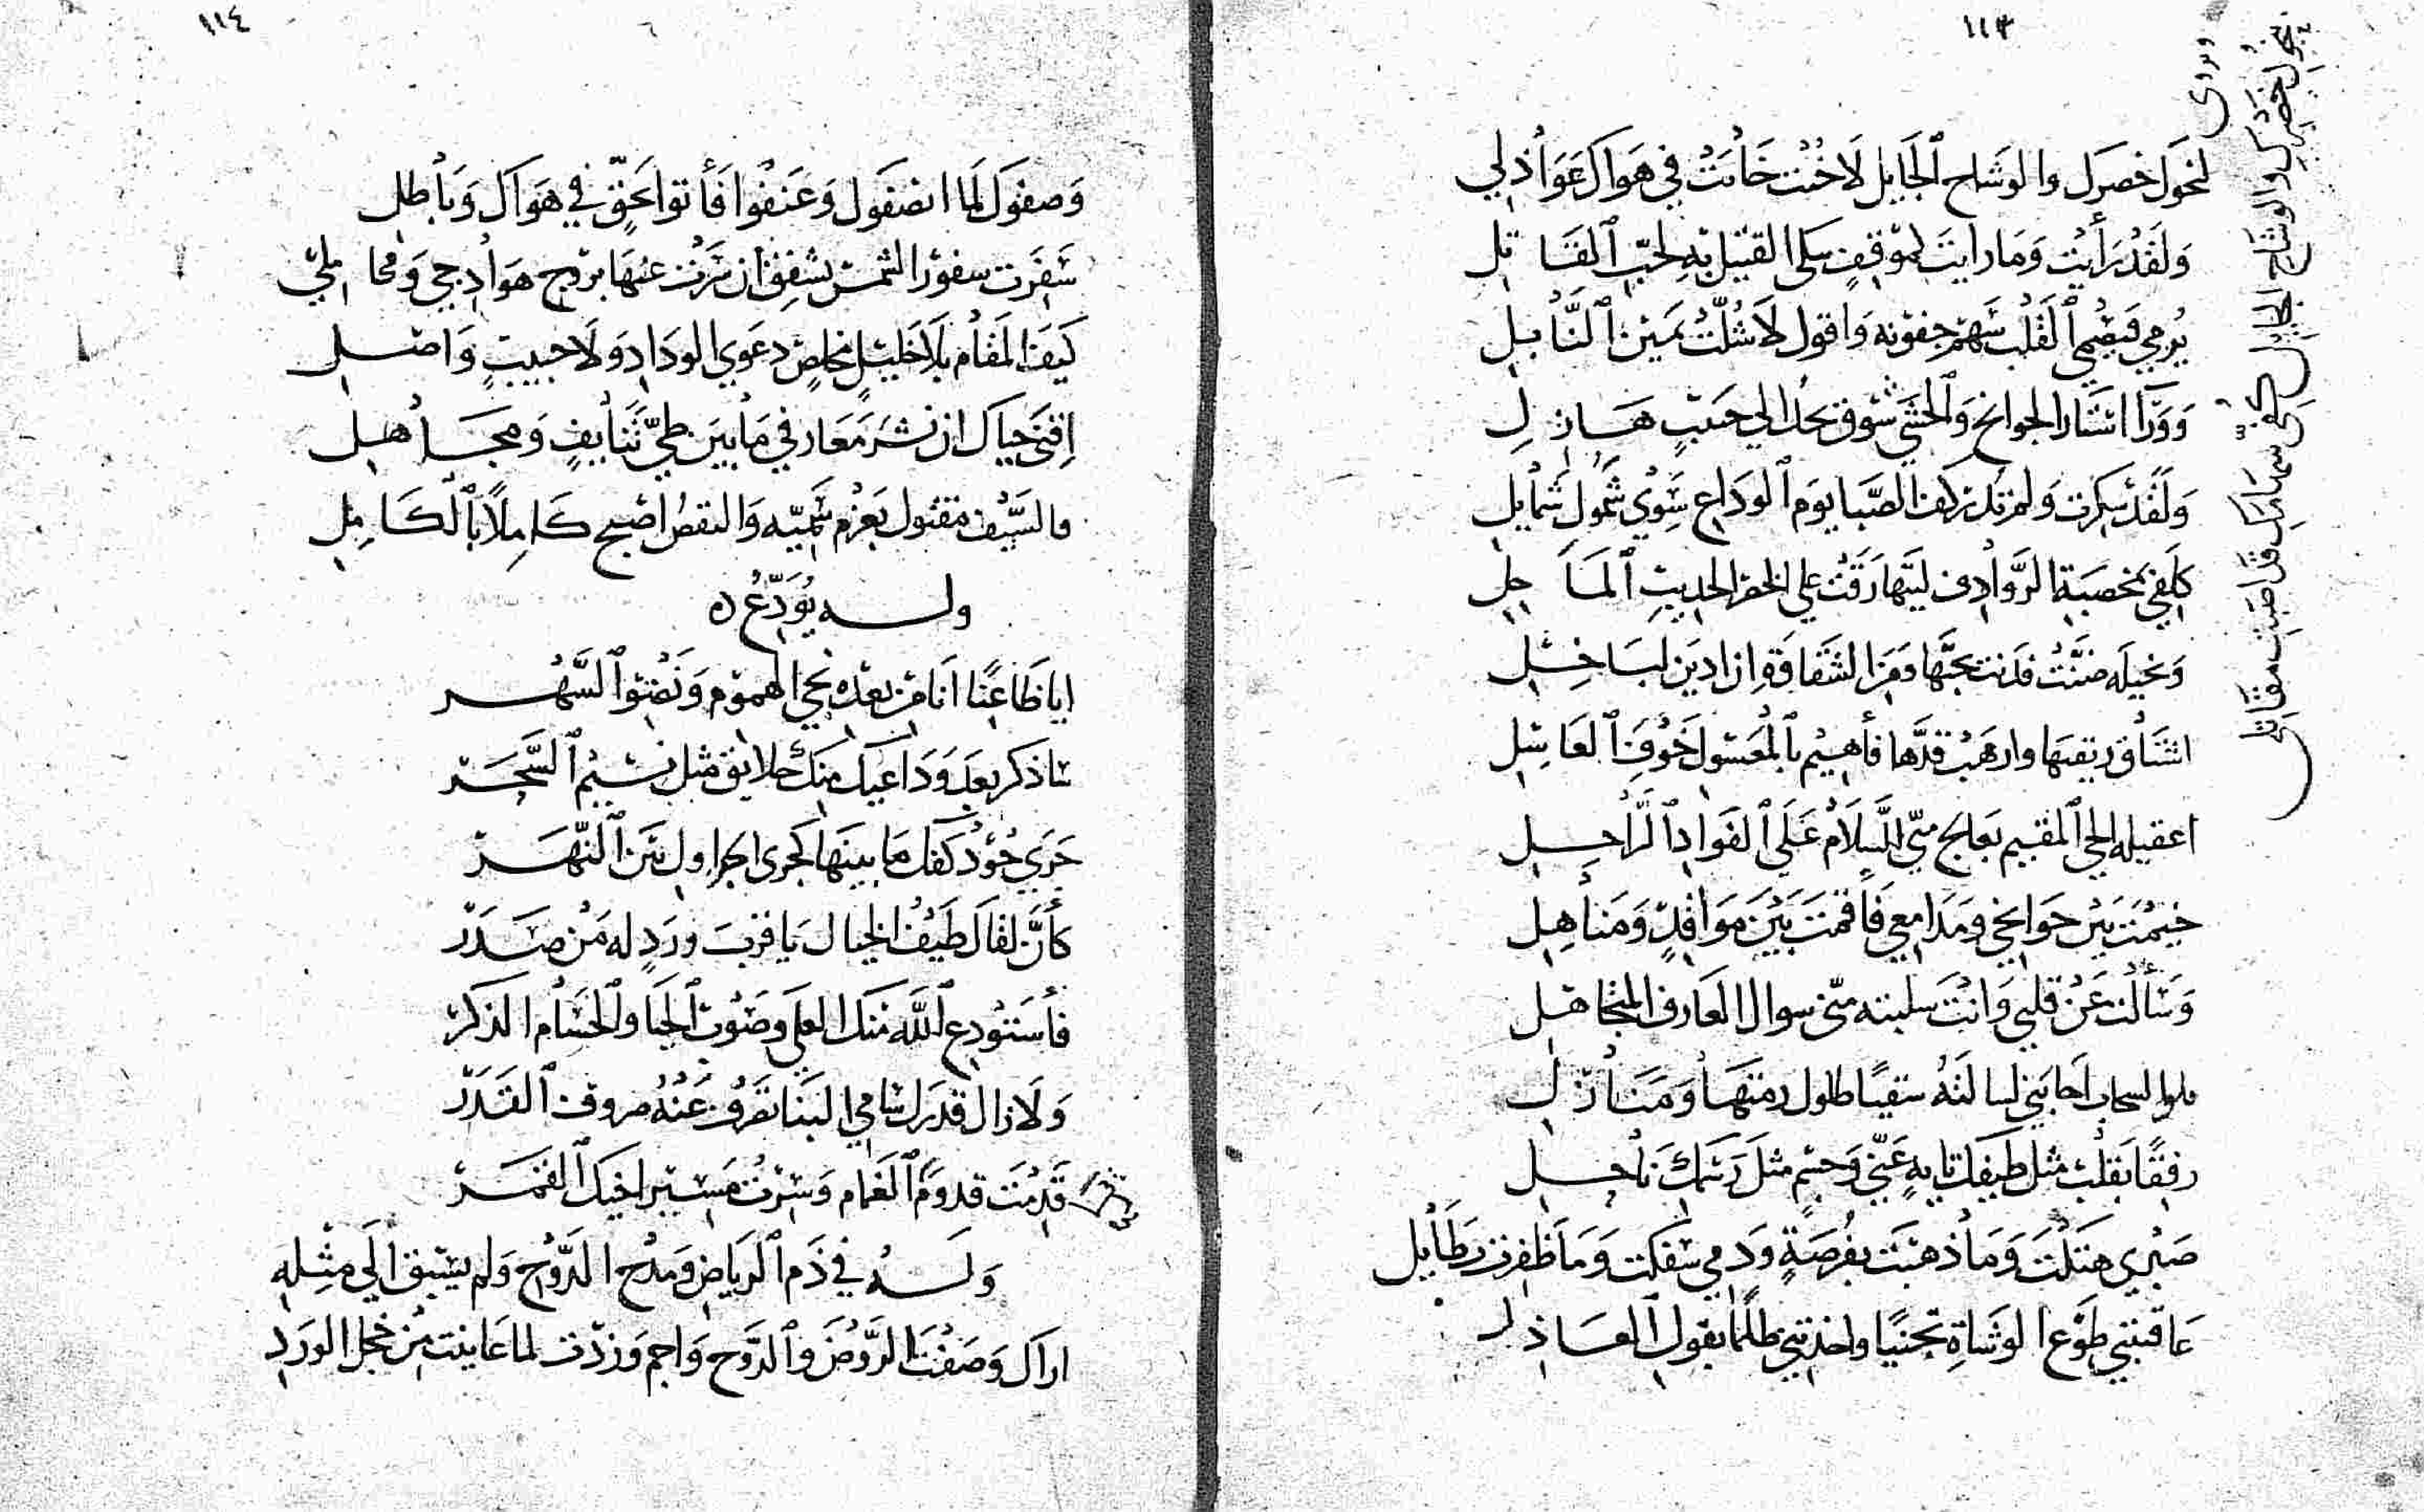 ١١٣
ويروى
بنحول خصرك والوشاح الجايل كفى سهامك قد اصبت مقاتلي
لنحول خصرك والوشاح ٱلجَايل لَا خُنت خَانتْ في هَواك عَوَاذلي
وَلقَدْ رَأيْت وَمَا رايتَ لموْقفٍ سَلى القتيل بهِ لحبّ ٱلقَاتل
يُرمي فيصْمي ٱلقلبَ سَهْم جفونه وَاقول لَا شُلّتْ يمَين ٱلنّابل
الجوانح وَٱلحشَى شوق بحدّ الي حبيبٍ هَازل
وَلقَدْ سكِرت وَلم تدر كف الصّبَا يوَم ٱلودَاع سِوْى شَمُول شمَايل
كلَفي بمخصبَة الرّوَادف ليتهَا رَقّتْ علي الخصْر الجديبِ ٱلمَاحل
وَبخيلَه ضنّتْ فدنت بحبّهَا وَمن الشقَاقة ان ادين لبَاخِل
اشتَاق ريقتهَا وارهَبُ قدّها فأهيْم بٱلمعْسُول خَوْفَ ٱلعَاسِل
اعقيله الحي ٱلمقيم بعَالج منّي السّلَام عَلَى ٱلفوَاد ٱلرّاحِل
خيمْتَ بَين جَوانحي وَمدَامعي فَاقمْتَ بَيْنَ مَوَاقدٍ وَمنَاهِل
وَسَألت عَنْ قلبي وَانْتَ سلبته منّي سوال العَارف المتجَاهل
السحاب اجابَني لسَالتهُ سَقيًا طلول دمنتهَا وَمنَازل
رفقًا بقلبٍ مثل طيفك تايهٍ عَنّي وَجسْمٍ مثلَ رَسْمك نَاحل
صَبْري هتَكْتَ وَمَا ذهبتَ بفرُصَةٍ وَدمي سَفكت وَمَا ظفِرت بطَايل
عَاقبتني طَوْعَ الوشَاةِ تجنيًا واخذتني ظلمًا بقول ٱلعَاذل
١١٤
وَصفوك لمَا انصَفوك وَعَنفْوا فَأتوا بحَقّ في هَوَاك وَبَاطل
سَفَرت سفوْر الشمسْ يشفِق ان سَرَتْ عنهَا بروْج هوَادجي وَمحَاملي
كيفَ المقَام بلَا خليْلٍ مخلصٍ دعوَي الودَاد وَلَا حبيبٍ وَاصل
اقنَى حيَاك ان نشرَ مَعَارفي مَا بَين طيّ تنَايفٍ وَمجَاهل
فالسّيْف مقتول بعَزْم سَميّه وَالنقصُ اصْبح كَاملًا بٱلكَامِل
ولــه يُوَدّعُ
ايا ظَاعنًا انَا من بعْده نجيّ الهموْم وَنضْو ٱلسّهَر
سَاذكر بعدَ وَدَاعيك منك خلايق مثل نسيْم ٱلسّحَر
جَرَي جُوْد كفك مَا بينهَا كجرى الجداول بَين ٱلنّهَر
كأنّ لقَاك طَيفُ الخيال يَا قربَ ورَدٍ له مَنْ صَدَر
فأستوْدع ٱلله منك العلي وصَوْبَ ٱلحيَا وٱلحسَام الذكر
وَلَا زال قدرَك سَامي البنَا تصَرّف عَنْهُ صروف ٱلقدَر
قَدِمْتَ قدوْمَ ٱلغمَام وَسرْتَ مسيْر اخيك ٱلقمَر
وَلــهُ في ذَم ٱلريَاض وَمدْح الدّوْح وَلم يسْبق الَي مثْله
اراك وَصَفْتَ الرّوْضَ وَٱلدّوْح وَاجم وَزدْت لما عَاينت من خجل الوَردِ